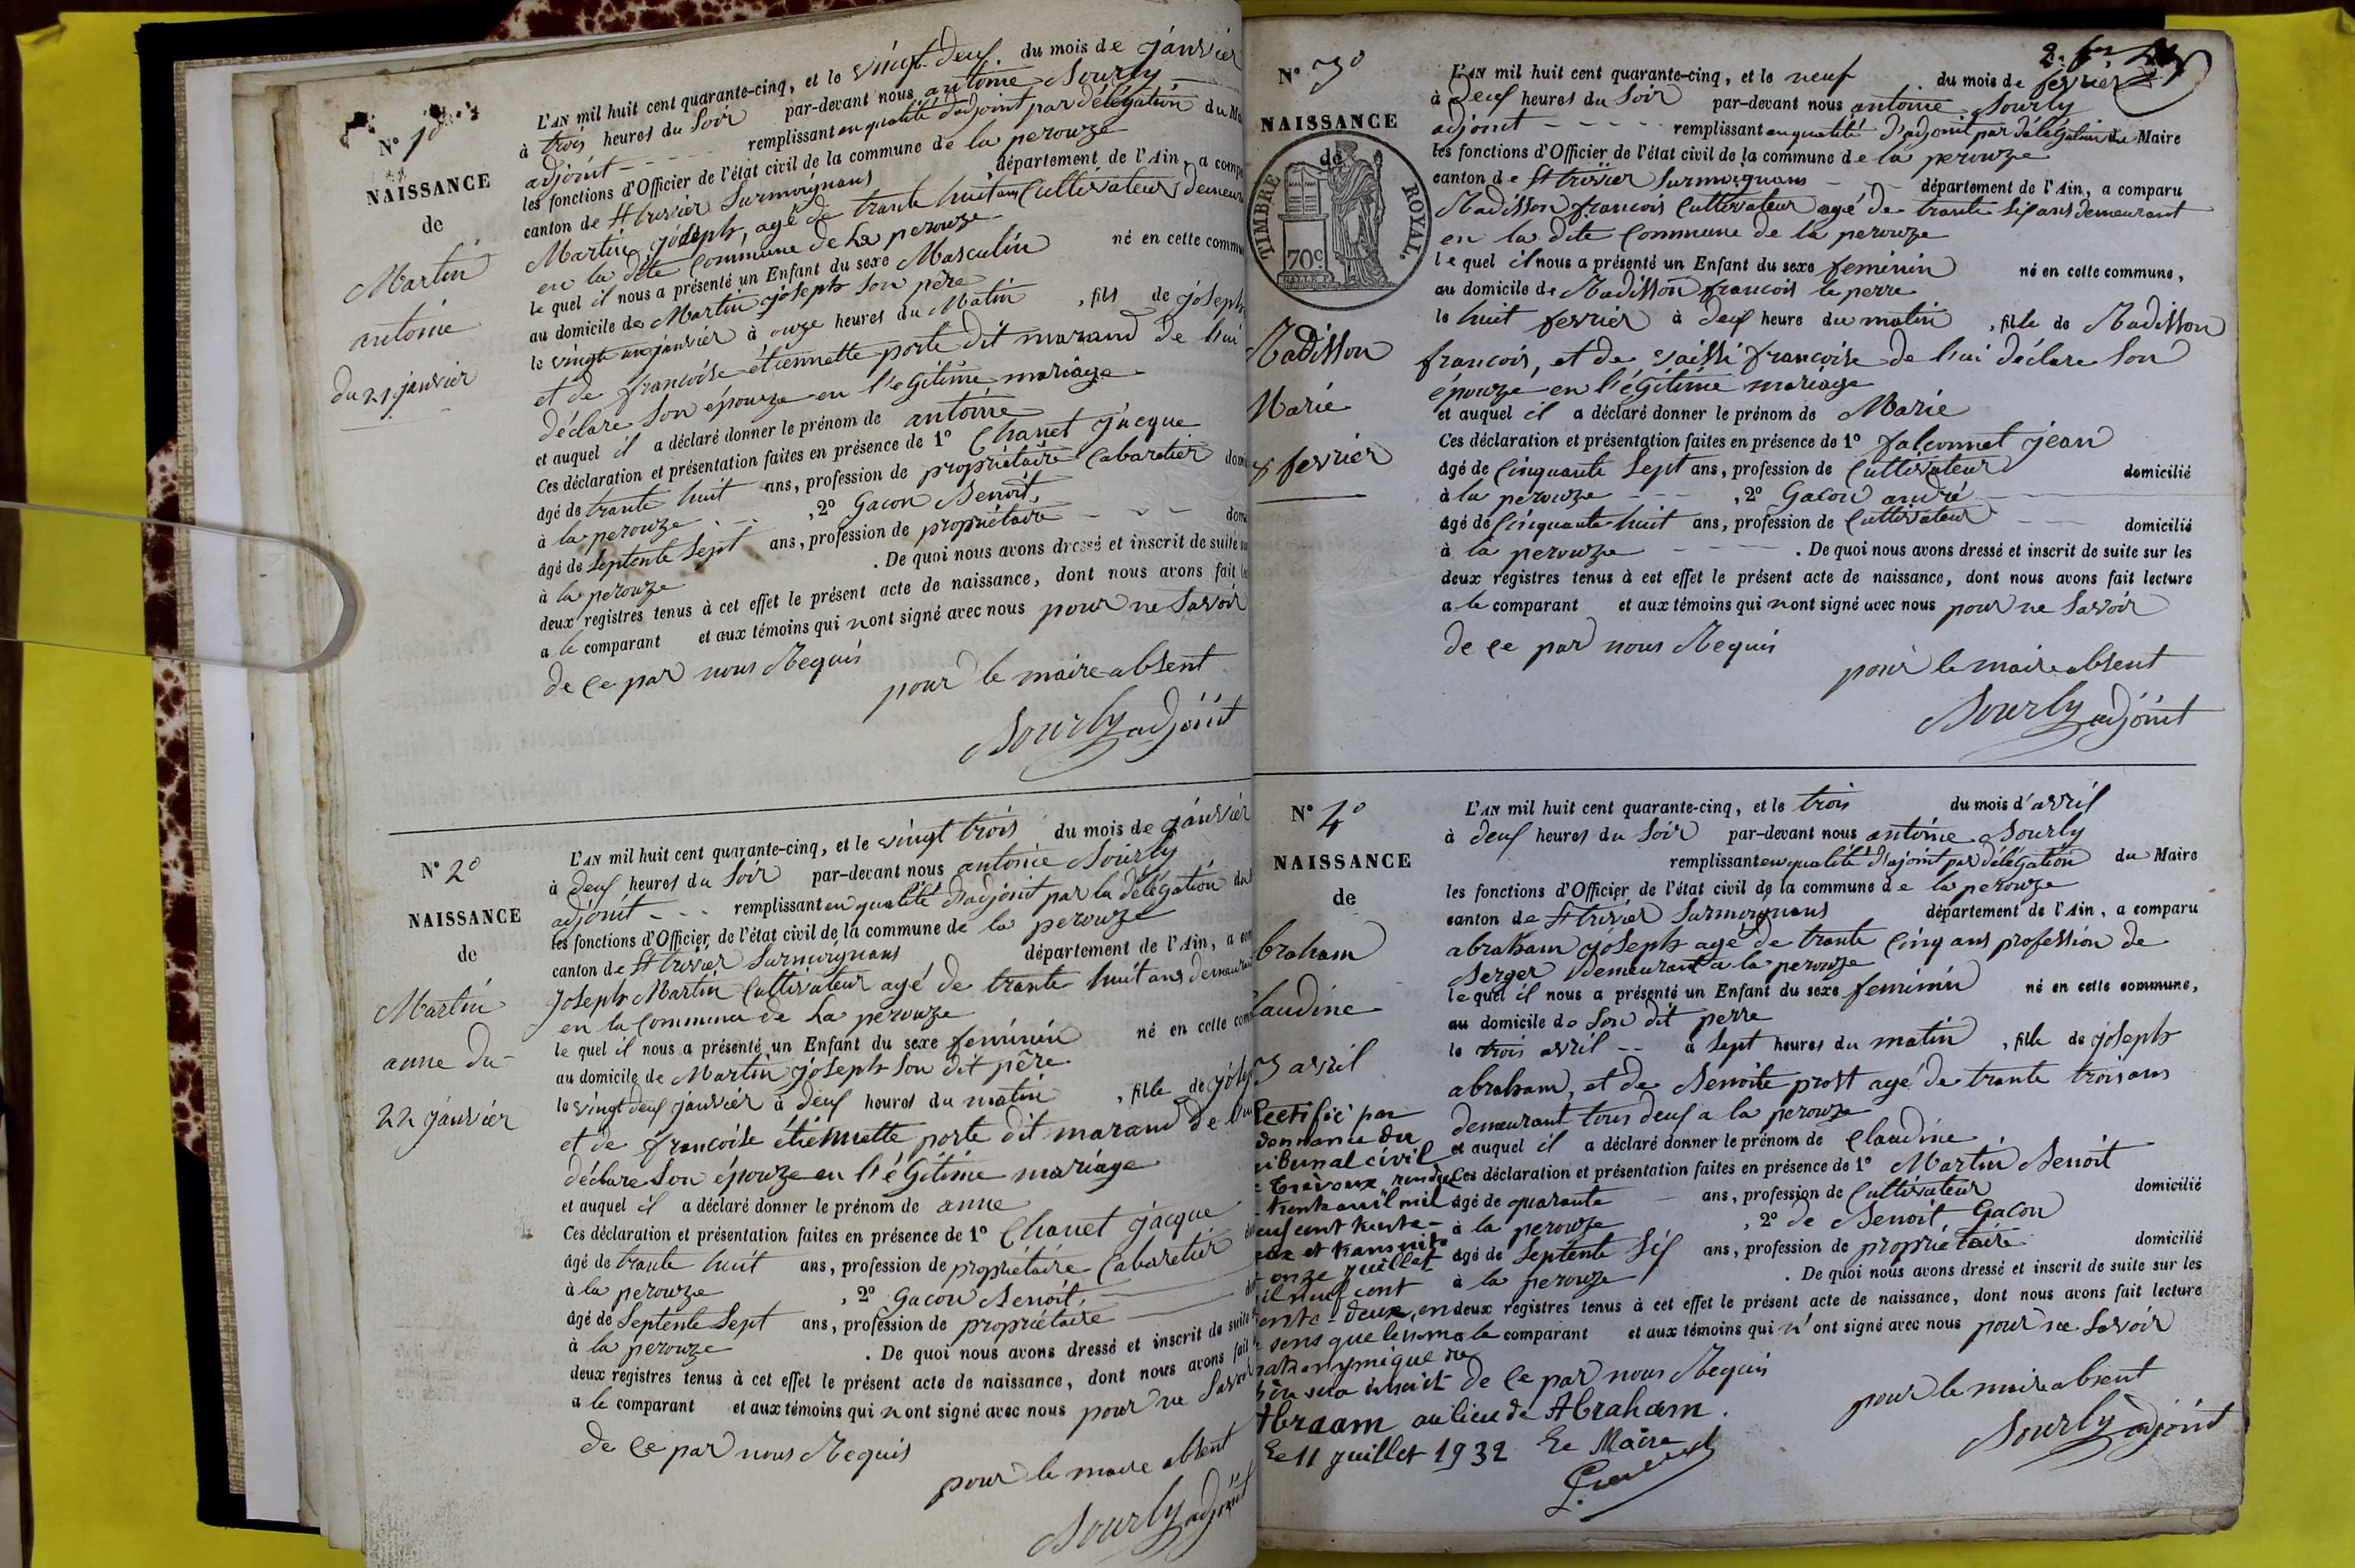 N° 1°
NAISSANCE
de
Martin
antoine
du 21 janvier
L'AN mil huit cent quarante-cinq, et le vingt-deux du mois de janvier
à trois heures du soir par-devant nous antoine Sourly
adjoint - - - remplissant en qualité d'adjoint par délégation du Ma
les fonctions d'Officier de l'état civil de la commune de la perouze
canton de St trivier surmoignans département de l'Ain, a comp
Martin joseph, agé de trante huit ans Cultivateur demeur
en la dite Commune de La perouze
le quel il nous a présenté un Enfant du sexe Masculin né en cette commu
au domicile de Martin joseph son père
le vingt un janvier à onze heures du Matin, fils de joseph
et de francoise étiennette porte dit marand de lui
déclare son épouze en l'égitime mariage
et auquel il a déclaré donner le prénom de antoine
Ces déclaration et présentation faites en présence de 1° Chanet jacque
âgé de trante huit ans, profession de propriétaire Cabaretier domi
à la perouze - - , 2° Gacon Benoit,
âgé de septente sept ans, profession de propriétaire - - - domi
à la perouze . De quoi nous avons dressé et inscrit de suite su
deux registres tenus à cet effet le présent acte de naissance, dont nous avons fait le
a le comparant et aux témoins qui n'ont signé avec nous pour ne savoir
de ce par nous Requis
pour le maire absent
Sourly adjoint
N° 2°
NAISSANCE
de
Martin
anne du
22 janvier
L'AN mil huit cent quarante-cinq, et le vingt trois du mois de janvier
à deux heures du soir par-devant nous antoine Sourly
adjoint - - - remplissant en qualité d'adjoint par la délégation du
les fonctions d'Officier de l'état civil de la commune de la perouze
canton de St trivier surmoignans département de l'Ain, a com
joseph Martin Cultivateur agé de trante huit ans demeurant
en la Commune de La perouze
le quel il nous a présenté un Enfant du sexe feminin né en cette com
au domicile de Martin joseph son dit père
le vingt deux janvier à deux heures du matin , fille de josep
et de francoise étiennette porte dit marand de lui
déclare son épouze en l'égitime mariage
et auquel il a déclaré donner le prénom de anne
Ces déclaration et présentation faites en présence de 1° Chanet jacque
âgé de trante huit ans, profession de propriétaire Cabaretier do
à la perouze , 2° Gacon Benoit,
âgé de septente sept ans, profession de propriétaire do
à la perouze . De quoi nous avons dressé et inscrit de suite
deux registres tenus à cet effet le présent acte de naissance, dont nous avons fait
a le comparant et aux témoins qui n'ont signé avec nous pour ne savoir
de ce par nous Requis
pour le maire absent
Sourly adjoint
N° 3°
NAISSANCE
de
TIMBRE ROYAL.
70c
Radisson
Marie
8 fevrier
L'AN mil huit cent quarante-cinq, et le neuf du mois de fevrier
à deux heures du soir par-devant nous antoine Sourly
adjoint - - - - remplissant en qualité d'adjoint par délégation du Maire
les fonctions d'Officier de l'état civil de la commune de la perouze
canton de St trivier surmoignans - - département de l'Ain, a comparu
Radisson francois Cultivateur agé de trante six ans demeurant
en la dite Commune de la perouze
le quel il nous a présenté un Enfant du sexe feminin né en cette commune,
au domicile de Radisson francois le perre
le huit fevrier à deux heure du matin , fille de Radisson
francois, et de vaissi francoise de lui déclare son
épouze en l'égitime mariage
et auquel il a déclaré donner le prénom de Marie
Ces déclaration et présentation faites en présence de 1° falconnet jean
âgé de Cinquante sept ans, profession de Cultivateur domicilié
à la perouze - - - , 2° Gacon andré
âgé de Cinquante huit ans, profession de Cultivateur - - domicilié
à la perouze - - - . De quoi nous avons dressé et inscrit de suite sur les
deux registres tenus à cet effet le présent acte de naissance, dont nous avons fait lecture
a le comparant et aux témoins qui n'ont signé avec nous pour ne savoir
de ce par nous Requis
pour le maire absent
Sourly adjoint
N° 4°
NAISSANCE
de
braham
laudine
3 avril
Rectifié par
donnance du
ribunal civil
Trévoux rendue
trente avril mil
euf cent trente-
eux et transcrite
onze juillet
il neuf cent
ente-deux, en
sens que le nom
patronymique du
père sera inscrit
Abraam au lieu de Abraham.
Le 11 juillet 1932 Le Maire
L'AN mil huit cent quarante-cinq, et le trois du mois d'avril
à deux heures du soir par-devant nous antoine Sourly
remplissant en qualité d'ajoint par délégation du Maire
les fonctions d'Officier de l'état civil de la commune de la perouze
canton de St trivier surmoignans département de l'Ain, a comparu
abraham joseph agé de trante Cinq ans profession de
Berger demeurant a la perouze
le quel il nous a présenté un Enfant du sexe feminin né en cette commune,
au domicile de son dit perre
le trois avril - - à sept heures du matin , fille de joseph
abraham, et de Benoite prost agé de trante trois ans
demeurant tous deux a la perouze
et auquel il a déclaré donner le prénom de Claudine
Ces déclaration et présentation faites en présence de 1° Martin Benoit
âgé de quarante - ans, profession de Cultivateur domicilié
à la perouze , 2° de Benoit Gacon
âgé de septente six ans, profession de propriétaire domicilié
à la perouze . De quoi nous avons dressé et inscrit de suite sur les
deux registres tenus à cet effet le présent acte de naissance, dont nous avons fait lecture
a le comparant et aux témoins qui n'ont signé avec nous pour ne savoir
de ce par nous Requis
pour le maire absent
Sourly adjoint